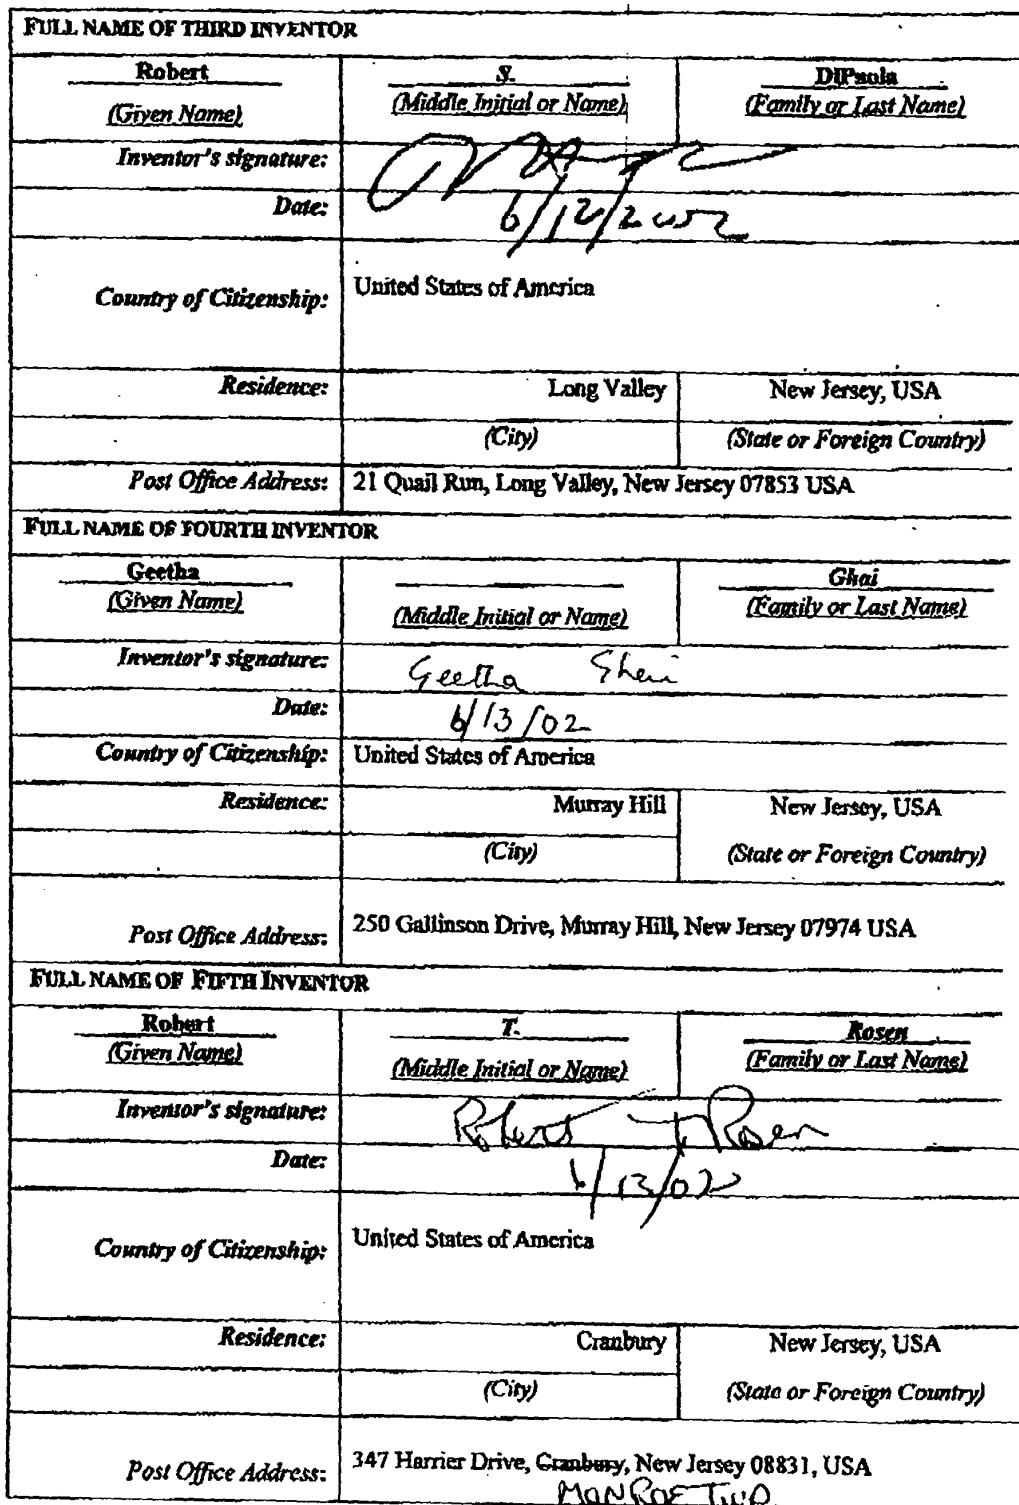 FULL NAME OF THIRD INVENTOR
Robert S. DiPaola
(Given Name) (Middle Initial or Name) (Family or Last Name)
Inventor's signature:
Date: 6/12/2002
Country of Citizenship: United States of America
Residence: Long Valley New Jersey, USA
(City) (State or Foreign Country)
Post Office Address: 21 Quail Run, Long Valley, New Jersey 07853 USA
FULL NAME OF FOURTH INVENTOR
Geetha Ghai
(Given Name) (Middle Initial or Name) (Family or Last Name)
Inventor's signature: Geetha Ghai
Date: 6/13/02
Country of Citizenship: United States of America
Residence: Murray Hill New Jersey, USA
(City) (State or Foreign Country)
Post Office Address: 250 Gallinson Drive, Murray Hill, New Jersey 07974 USA
FULL NAME OF FIFTH INVENTOR
Robert T. Rosen
(Given Name) (Middle Initial or Name) (Family or Last Name)
Inventor's signature: Robert T. Rosen
Date: 6/13/02
Country of Citizenship: United States of America
Residence: Cranbury New Jersey, USA
(City) (State or Foreign Country)
Post Office Address: 347 Harrier Drive, Cranbury, New Jersey 08831, USA
MONROE TWP.